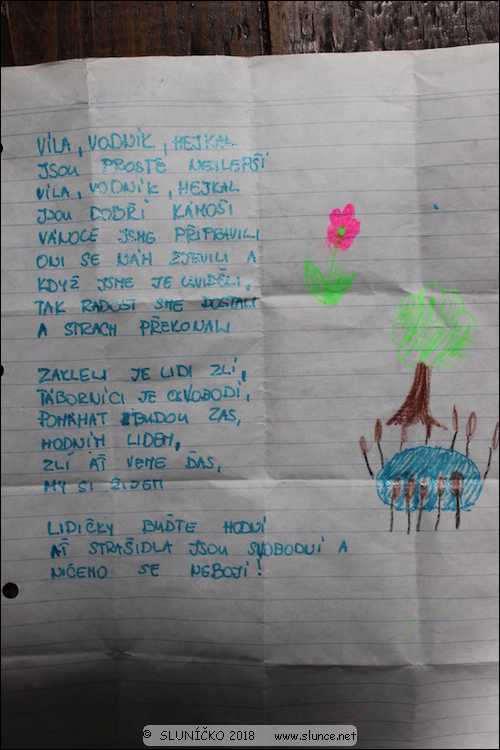 VÍLA, VODNÍK, HEJKAL
JSOU PROSTĚ NEJLEPŠÍ
VÍLA, VODNÍK, HEJKAL
JSOU DOBŘÍ KÁMOŠI
VÁNOCE JSME PŘIPRAVILI
ONI SE NÁM ZJEVILI A
KDYŽ JSME JE UVIDĚLI,
TAK RADOST SME DOSTALI
A STRACH PŘEKONALI
ZAKLELI JE LIDI ZLÍ,
TÁBORNÍCI JE OSVOBODÍ,
POMÁHAT BUDOU ZAS,
HODNÍM LIDEM,
ZLÍ AŤ VEME ĎAS,
MY SI
LIDIČKY BUĎTE HODNÍ
AŤ STRAŠIDLA JSOU SVOBODNÍ A
NIČEHO SE NEBOJÍ!
© SLUNÍČKO 2018 www.slunce.net